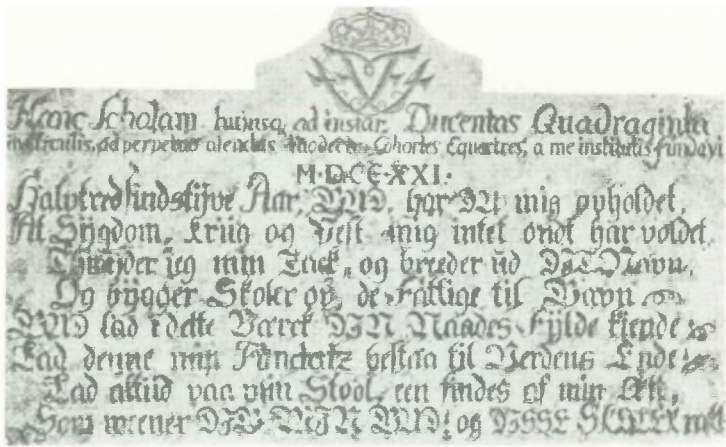 Hanc Scholam hujusq, ad instar, Ducentas Quadraginta
ad perpetuo Cohortes Equestres, a me institutis fundavi
M·D·CC·XXI·
Halvtredsindstijve Aar, GUD, har DU mig opholdet,
At Sygdom, Kriig og Pest mig intet ondt har voldet,
jeg min Tack, og breeder ud DIT Navn,
Og bygger Skoler op, de Fattige til Gavn
GUD lad i dette Værck DIN Naades Fylde kiende
Lad denne min Fundatz bestaa til Verdens Ende
Lad altiid paa min Stool, een findes af min Æt,
Som meener DIG MIN GUD! og DISSE SKOLER